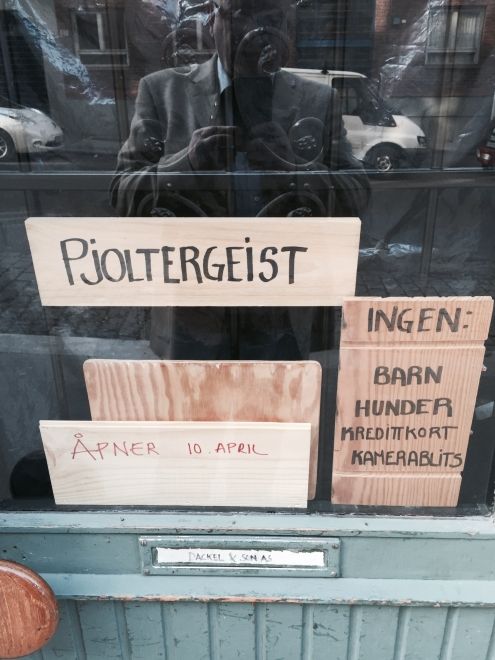 PJOLTERGEIST
INGEN:
BARN
HUNDER
KREDITTKORT
KAMERABLITS
ÅPNER 10. APRIL
DACKEL & SØN AS